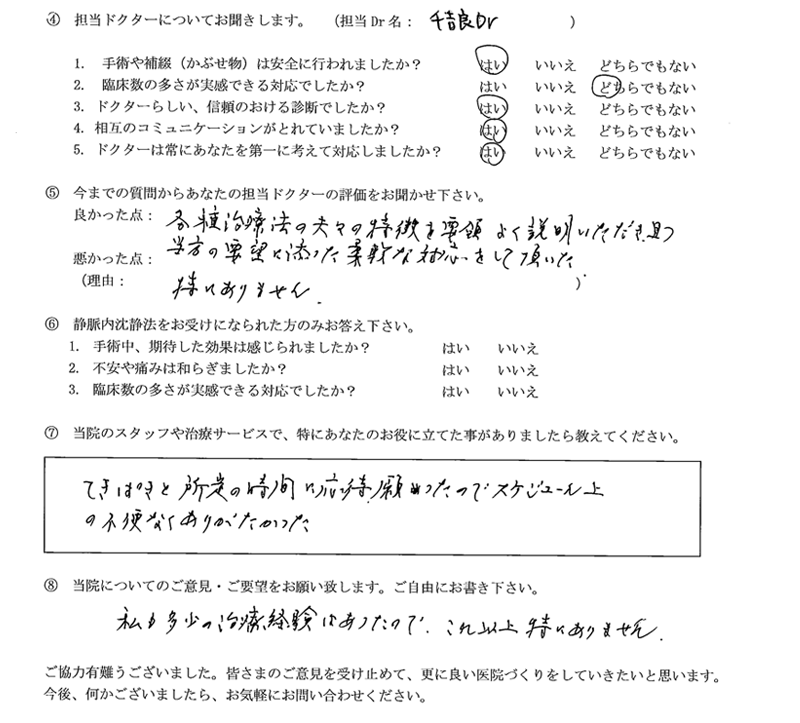 ④ 担当ドクターについてお聞きします。 (担当Dr名: 千吉良Dr )
1. 手術や補綴(かぶせ物)は安全に行われましたか? はい いいえ どちらでもない
2. 臨床数の多さが実感できる対応でしたか? はい いいえ どちらでもない
3. ドクターらしい、信頼のおける診断でしたか? はい いいえ どちらでもない
4. 相互のコミュニケーションがとれていましたか? はい いいえ どちらでもない
5. ドクターは常にあなたを第一に考えて対応しましたか? はい いいえ どちらでもない
⑤ 今までの質問からあなたの担当ドクターの評価をお聞かせ下さい。
良かった点: 各種治療法の夫々の特徴を要領よく説明いただき且つ
当方の要望に添った柔軟な対応をして頂いた
悪かった点:
(理由: 特にありません. )
⑥ 静脈内沈静法をお受けになられた方のみお答え下さい。
1. 手術中、期待した効果は感じられましたか? はい いいえ
2. 不安や痛みは和らぎましたか? はい いいえ
3. 臨床数の多さが実感できる対応でしたか? はい いいえ
⑦ 当院のスタッフや治療サービスで、特にあなたのお役に立てた事がありましたら教えてください。
てきぱきと所定の時間に応待願めったのでスケジュール上
の不便なくありがたかった
⑧ 当院についてのご意見・ご要望をお願い致します。ご自由にお書き下さい。
私も多少の治療経験はあったので、これ以上特にありません.
ご協力有難うございました。皆さまのご意見を受け止めて、更に良い医院づくりをしていきたいと思います。
今後、何かございましたら、お気軽にお問い合わせください。